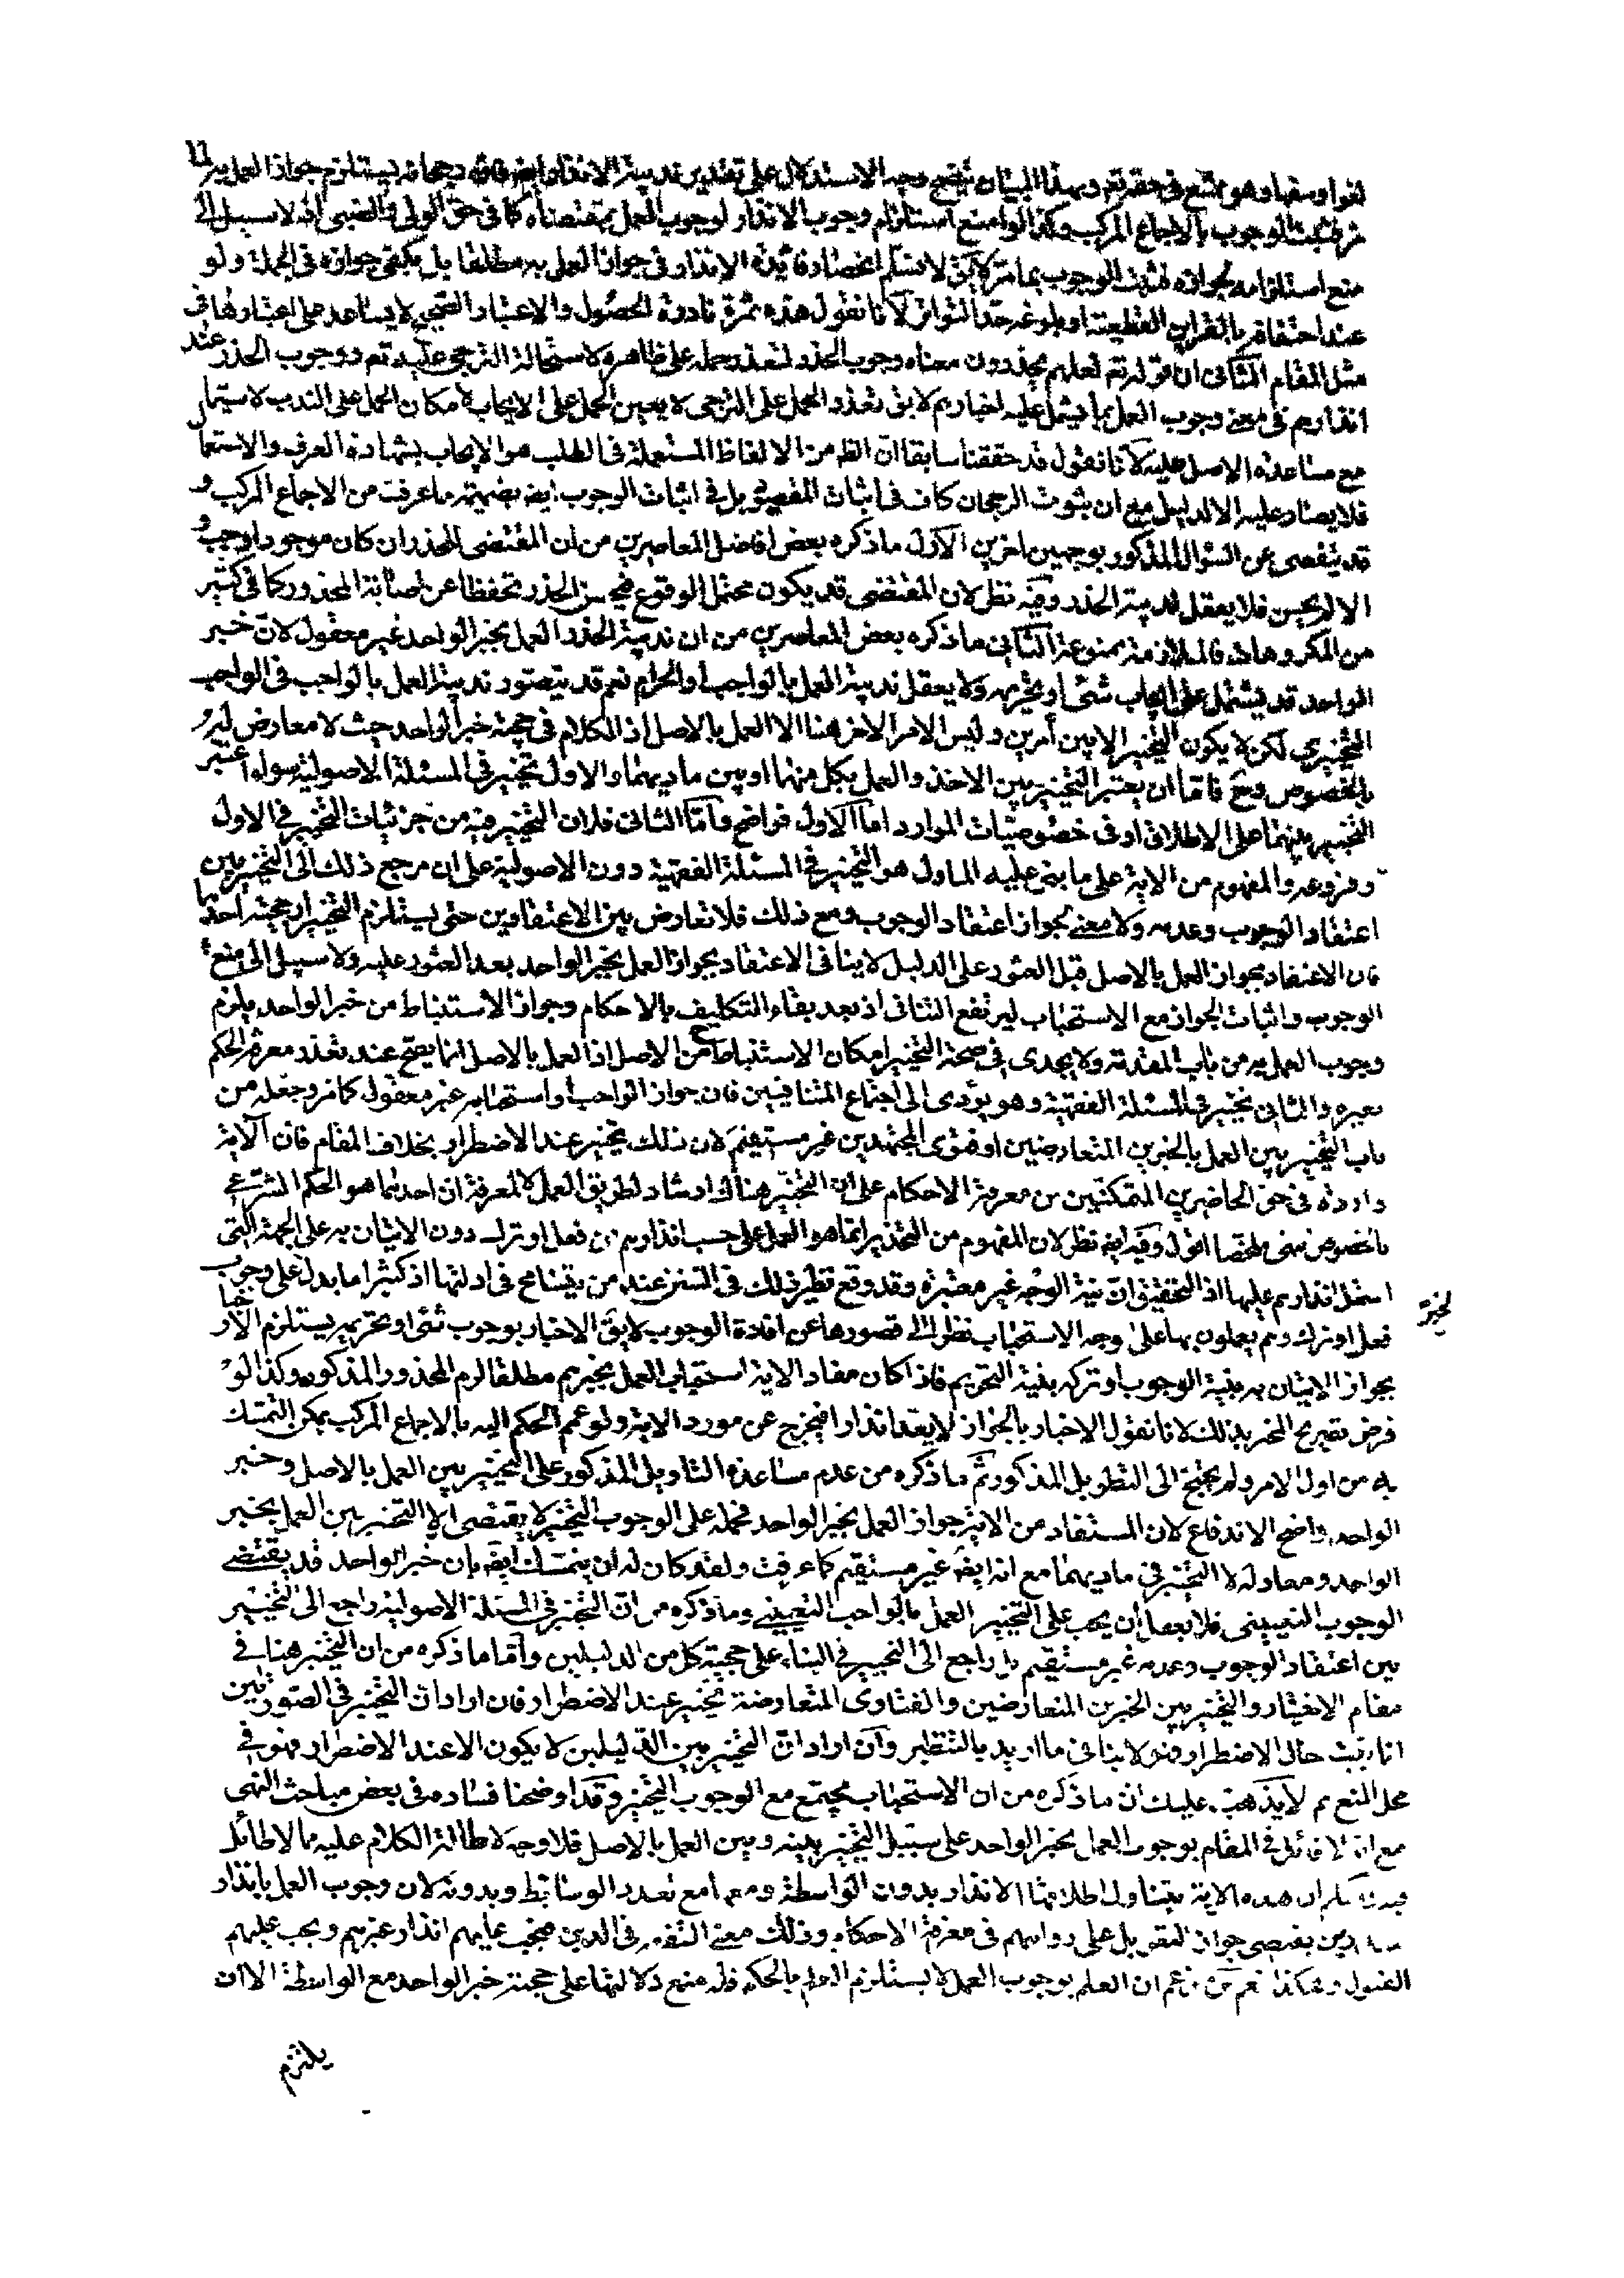 لغوا وسفها وهو ممتنع في حقه تعم وبهذا البيان يتضح وجه الاستدلال على تقدير ندبية الانذار ايضا فانه يستلزم جواز العمل به
ثم يثبت الوجوب بالاجماع المركب وكذا لو امنع استلزام وجوب الانذار لوجوب العمل بمقتضاه كما في حق الولى والصبى اذ لا سبيل الى
منع استلزامه لجوازه فيثبت الوجوب بما مر لا يق لا نسلم انحصار فائدة الانذار في جواز العمل به مطلقا بل يكفى جوازه في الجملة ولو
عند احتفافه بالقراين القطعية او بلوغه حد التواتر لأنا نقول هذه ثمرة نادرة الحصول والاعتبار الصحيح لا يساعد على اعتبارها في
مثل المقام الثانى ان قوله تعم لعلهم يحذرون معناه وجوب الحذر لتعذر حمله على ظاهره لاستحالة الترجى عليه تعم ووجوب الحذر عند
انذارهم في معنى وجوب العمل بما يشتمل عليه اخبارهم لا يق تعذر الحمل على الترجى لا يعين الحمل على الايجاب لامكان الحمل على الندب لا سيما
مع مساعدة الاصل عليه لأنا نقول قد حققنا سابقا ان الظ من الالفاظ المستعملة في الطلب هو الايجاب بشهادة العرف والاستعمال
فلا يصار عليه الا لدليل مع ان ثبوت الرجحان كاف في اثبات المقصود بل في اثبات الوجوب ايضا بضميمة ما عرفت من الاجماع المركب و
قد يتفصى عن السؤال المذكور بوجهين اخرين الأول ما ذكره بعض افاضل المعاصرين من ان المقتضى للحذر ان كان موجودا وجب و
الا لم يحسن فلا يعقل ندبية الحذر وفيه نظر لان المقتضى قد يكون محتمل الوقوع فيحسن الحذر تحفظا عن اصابة المحذور كما في كثير
من المكروهات فالملازمة ممنوعة الثانى ما ذكره بعض المعاصرين من ان ندبية الحذر العمل بخبر الواحد غير معقول لان خبر
الواحد قد يشتمل على ايجاب شئ او تحريمه ولا يعقل ندبية العمل بالواجب او الحرام نعم قد يتصور ندبية العمل بالواجب في الواجب
التخييرى لكن لا يكون التخيير الا بين أمرين وليس الامر الاخر هنا الا العمل بالاصل اذ الكلام في حجية خبر الواحد حيث لا معارض له
بالخصوص وح فاما ان يعتبر التخيير بين الاخذ والعمل بكل منهما او بين ماديهما والاول تخيير في المسئلة الاصولية سواء اعتبر
التخيير بينهما على الاطلاق او في خصوصيات الموارد اما الأول فواضح وأما الثانى فلان التخيير فيه من جزئيات التخيير في الاول
وفروعه والمفهوم من الاية على ما بنى عليه الماول هو التخيير في المسئلة الفقهية دون الاصولية على ان مرجع ذلك الى التخيير بين
اعتقاد الوجوب وعدمه ولا معنى لجواز اعتقاد الوجوب ومع ذلك فلا تعارض بين الاعتقادين حتى يستلزم التخيير او حجية احدهما
فان الاعتقاد بجواز العمل بالاصل قبل العثور على الدليل لا ينافى الاعتقاد بجواز العمل بخبر الواحد بعد العثور عليه ولا سبيل الى منع
الوجوب واثبات الجواز مع الاستحباب ليرتفع التنافى اذ بعد بقاء التكليف بالاحكام وجواز الاستنباط من خبر الواحد يلزم
وجوب العمل به من باب المقدمة ولا يجدى في صحة التخيير امكان الاستنباط ح من الاصل اذ العمل بالاصل انما يصح عند تعذر معرفة الحكم
بغيره والثانى تخيير في المسئلة الفقهية وهو يؤدى الى اجتماع المتنافيين فان جواز الواجب او استحبابه غير معقول كما مر وجعله من
باب التخيير بين العمل بالخبرين المتعارضين او فتوى المجتهدين غير مستقيم لان ذلك تخيير عند الاضطرار بخلاف المقام فان الآية
واردة في حق الحاضرين المتمكنين من معرفة الاحكام على ان التخيير هناك ارشاد لطريق العمل لا لمعرفة ان احدهما هو الحكم الشرعى
بالخصوص انتهى ملخصا اقول وفيه ايضا نظر لان المفهوم من التحذير انما هو العمل على حسب انذارهم من فعل او ترك دون الاتيان به على الجهة التى
اشتمل انذارهم عليها اذ التحقيق ان نية الوجه غير معتبرة وقد وقع نظير ذلك في السنن عند من يتسامح في ادلتها اذ كثيرا ما يدل على وجوب
فعل او تركه وهم يعملون بها على وجه الاستحباب نظرا الى قصورها عن افادة الوجوب لا يق الاخبار بوجوب شئ او تحريمه يستلزم الاخبار
بجواز الاتيان به بنية الوجوب او تركه بنية التحريم فاذا كان مفاد الاية استحباب العمل بخبرهم مطلقا لزم المحذور المذكور وكذا لو
فرض تصريح المخبر بذلك لانا نقول الاخبار بالجواز لا يعد انذارا فيخرج عن مورد الاية ولو عمم الحكم اليه بالاجماع المركب يمكن التمسك
به من اول الامر ولم يحتج الى التطويل المذكور ثم ما ذكره من عدم مساعدة التاويل المذكور على التخيير بين العمل بالاصل وخبر
الواحد واضح الاندفاع لان المستفاد من الاية جواز العمل بخبر الواحد فحمله على الوجوب التخييرى لا يقتضى الا التخيير بين العمل بخبر
الواحد ومعادله لا التخيير في ماديهما مع انه ايضا غير مستقيم كما عرفت ولقد كان له ان يتمسك ايضا بان خبر الواحد قد يقتضى
الوجوب التعيينى فلا يعقل ان يجب على التخيير العمل بالواجب التعيينى وما ذكره من ان التخيير في المسئلة الاصولية راجع الى التخيير
بين اعتقاد الوجوب وعدمه غير مستقيم بل راجع الى التخيير في البناء على حجية كل من الدليلين وأما ما ذكره من ان التخيير هنا في
مقام الاختيار والتخيير بين الخبرين المتعارضين والفتاوى المتعارضة تخيير عند الاضطرار فان اراد ان التخيير في الصورتين
انما يثبت حال الاضطرار فهو لا ينافى ما اريد بالتنظير وان اراد ان التخيير بين الدليلين لا يكون الا عند الاضطرار فهو في
محل المنع ثم لا يذهب عليك ان ما ذكره من ان الاستحباب يجتمع مع الوجوب التخييرى قد اوضحنا فساده في بعض مباحث النهى
مع انه لا قائل في المقام بوجوب العمل بخبر الواحد على سبيل التخيير بينه وبين العمل بالاصل فلا وجه لاطالة الكلام عليه بما لا طائل
ان هذه الاية يتناول اطلاقها الانذار بدون الواسطة ومعها مع تعدد الوسائط وبدونه لان وجوب العمل بانذار
يقتضى جواز التعويل على روايتهم في معرفة الاحكام وذلك معنى التفقه في الدين فيجب عليهم انذار غيرهم ويجب عليهم
القبول وهكذا نعم من زعم ان العلم بوجوب العمل لا يستلزم العلم بالحكم فله منع دلالتها على حجية خبر الواحد مع الواسطة الا ان
يلتزم